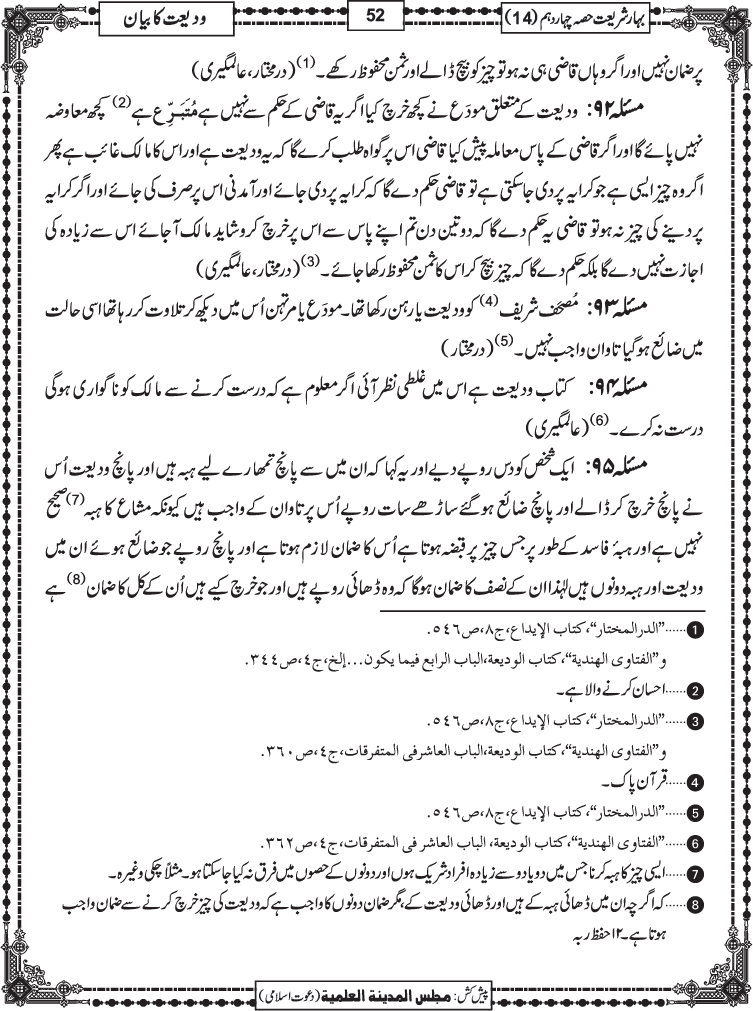 بہارِ شریعت حصہ چہاردہم (14)
52
ودیعت کا بیان
پر ضمان نہیں اور اگر وہاں قاضی ہی نہ ہو تو چیز کو بیچ ڈالے اور ثمن محفوظ رکھے۔(1) (درمختار، عالمگیری)
مسئلہ ۹۲: ودیعت کے متعلق مودَع نے کچھ خرچ کیا اگر یہ قاضی کے حکم سے نہیں ہے مُتَبَرِّع ہے(2) کچھ معاوضہ
نہیں پائے گا اور اگر قاضی کے پاس معاملہ پیش کیا قاضی اس پر گواہ طلب کرے گا کہ یہ ودیعت ہے اور اس کا مالک غائب ہے پھر
اگر وہ چیز ایسی ہے جو کرایہ پر دی جاسکتی ہے تو قاضی حکم دے گا کہ کرایہ پر دی جائے اور آمدنی اس پر صرف کی جائے اور اگر کرایہ
پر دینے کی چیز نہ ہو تو قاضی یہ حکم دے گا کہ دو تین دن تم اپنے پاس سے اس پر خرچ کرو شاید مالک آجائے اس سے زیادہ کی
اجازت نہیں دے گا بلکہ حکم دے گا کہ چیز بیچ کر اس کا ثمن محفوظ رکھا جائے۔(3) (درمختار، عالمگیری)
مسئلہ ۹۳: مُصْحَف شریف(4) کو ودیعت یا رہن رکھا تھا۔ مودَع یا مرتہن اُس میں دیکھ کر تلاوت کر رہا تھا اسی حالت
میں ضائع ہو گیا تاوان واجب نہیں۔(5) (درمختار)
مسئلہ ۹۴: کتاب ودیعت ہے اس میں غلطی نظر آئی اگر معلوم ہے کہ درست کرنے سے مالک کو ناگواری ہوگی
درست نہ کرے۔(6) (عالمگیری)
مسئلہ ۹۵: ایک شخص کو دس روپے دیے اور یہ کہا کہ ان میں سے پانچ تمھارے لیے ہبہ ہیں اور پانچ ودیعت اُس
نے پانچ خرچ کر ڈالے اور پانچ ضائع ہو گئے ساڑھے سات روپے اُس پر تاوان کے واجب ہیں کیونکہ مشاع کا ہبہ(7) صحیح
نہیں ہے اور ہبۂ فاسد کے طور پر جس چیز پر قبضہ ہوتا ہے اُس کا ضمان لازم ہوتا ہے اور پانچ روپے جو ضائع ہوئے ان میں
ودیعت اور ہبہ دونوں ہیں لہٰذا ان کے نصف کا ضمان ہوگا کہ وہ ڈھائی روپے ہیں اور جو خرچ کیے ہیں اُن کے کل کا ضمان(8) ہے
1 ......”الدرالمختار“، کتاب الإیداع، ج٨، ص٥٤٦.
و”الفتاوی الھندیة“، کتاب الودیعة، الباب الرابع فیما یکون...إلخ، ج٤، ص٣٤٤.
2 ......احسان کرنے والا ہے۔
3 ......”الدرالمختار“، کتاب الإیداع، ج٨، ص٥٤٦.
و”الفتاوی الھندیة“، کتاب الودیعة، الباب العاشر فی المتفرقات، ج٤، ص٣٦٠.
4 ......قرآن پاک۔
5 ......”الدرالمختار“، کتاب الإیداع، ج٨، ص٥٤٦.
6 ......”الفتاوی الھندیة“، کتاب الودیعة، الباب العاشر فی المتفرقات، ج٤، ص٣٦٢.
7 ......ایسی چیز کا ہبہ کرنا جس میں دو یا دو سے زیادہ افراد شریک ہوں اور دونوں کے حصوں میں فرق نہ کیا جاسکتا ہو۔ مثلاً چکی وغیرہ۔
8 ......کہ اگرچہ ان میں ڈھائی ہبہ کے ہیں اور ڈھائی ودیعت کے، مگر ضمان دونوں کا واجب ہے کہ ودیعت کی چیز خرچ کرنے سے ضمان واجب
ہوتا ہے۔ ۱۲ حفظ ربہ
پیش کش: مجلس المدینة العلمیة (دعوتِ اسلامی)